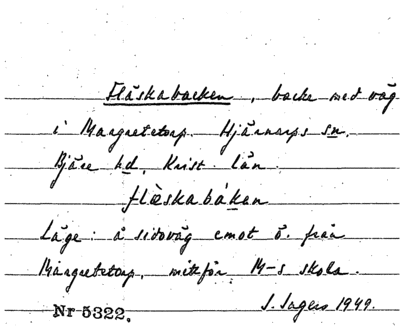 Fläskabacken, backe med väg
i Margretetorp. Hjärnarps sn.
Bjäre hd, Krist. län.
flæskabákan
Läge: å sidoväg emot ö. från
Margretetorp, mittför M-s skola.
Nr 5322. J. Sagers 1949.